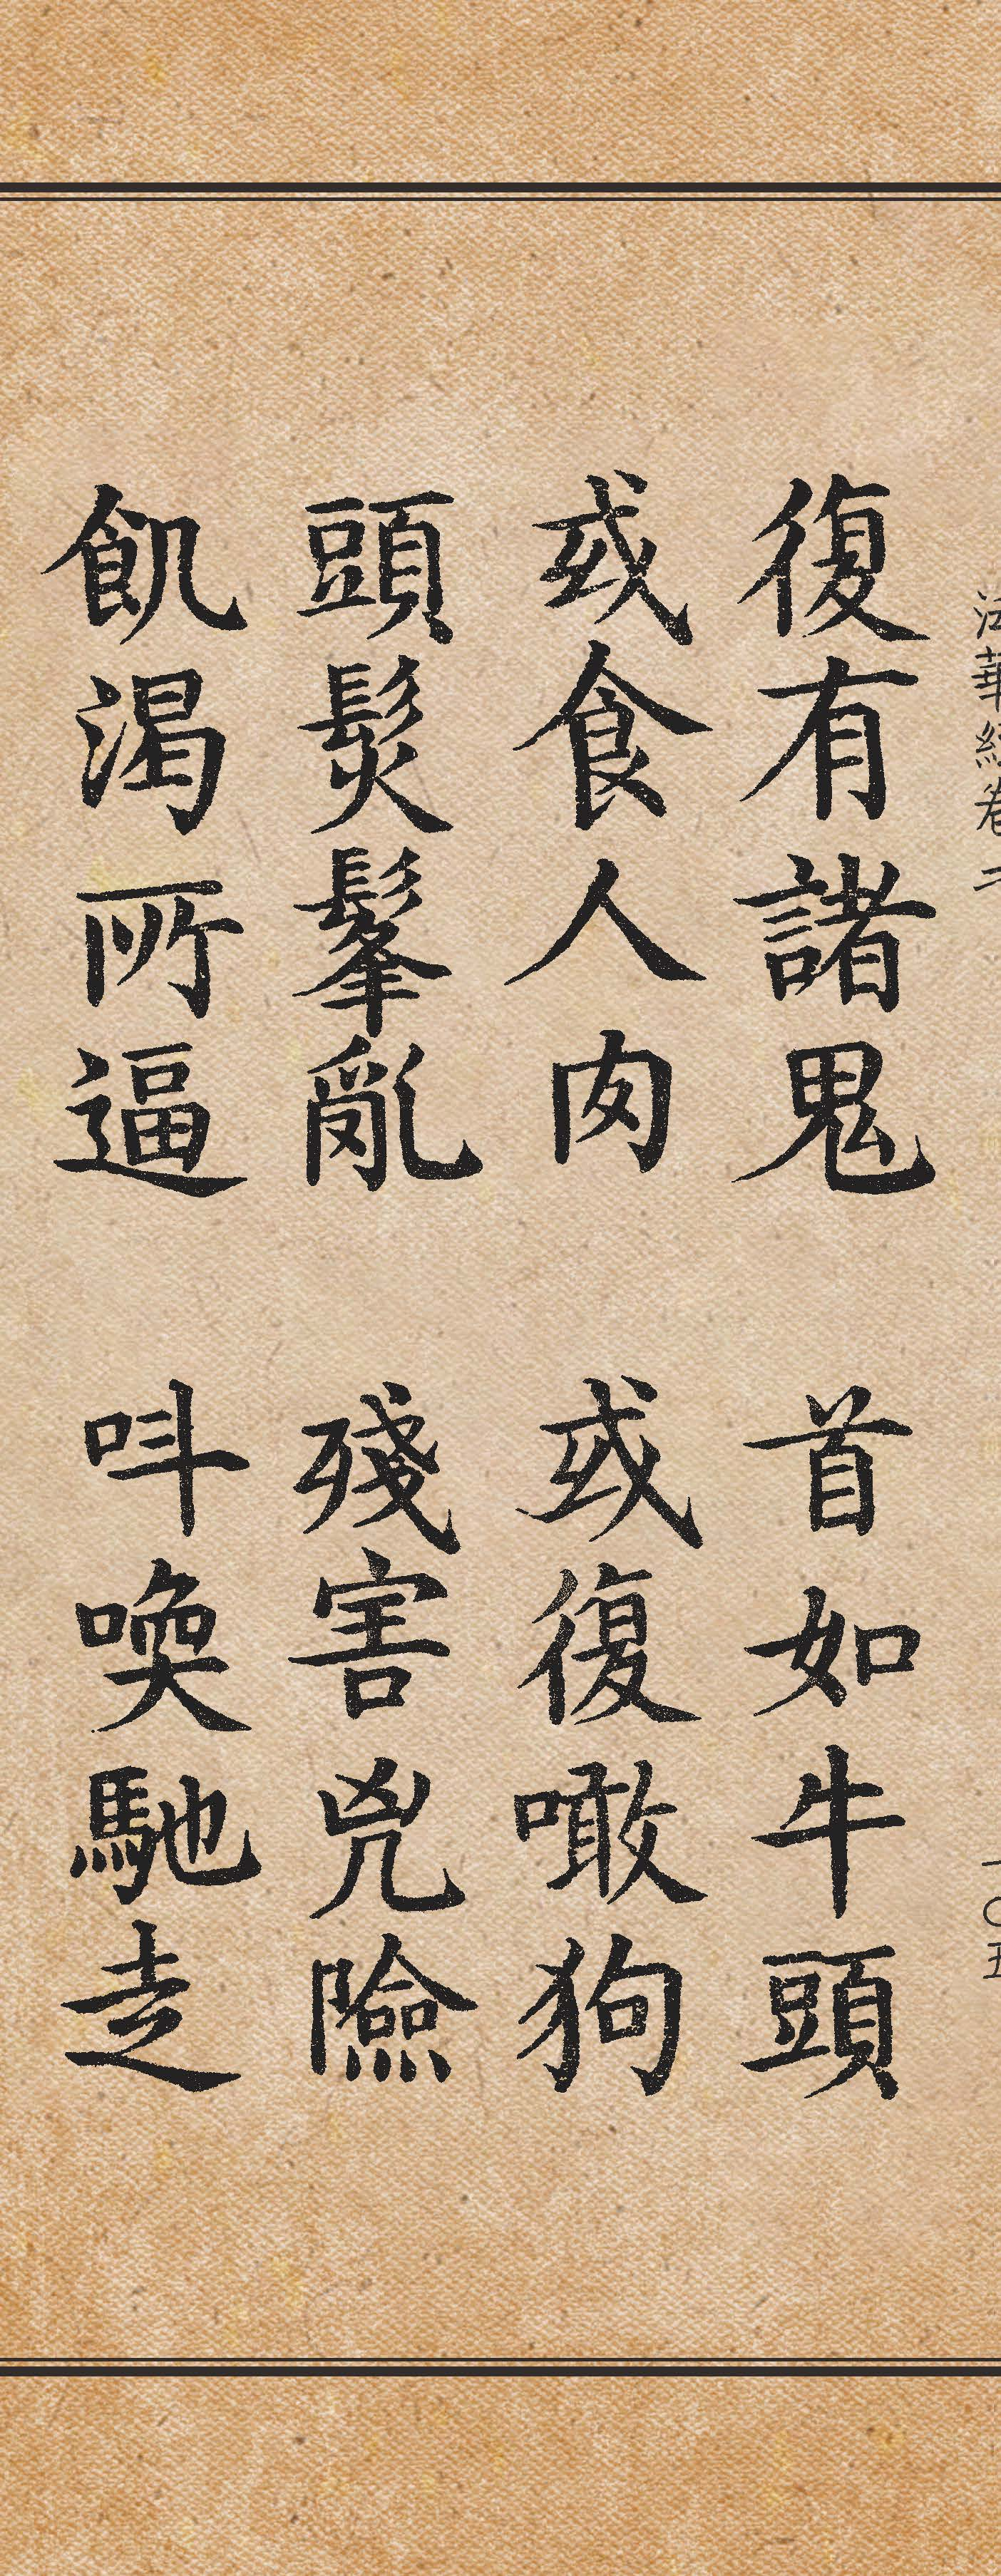 法華經卷二
一〇五
復有諸鬼 首如牛頭
或食人肉 或復噉狗
頭髮鬔亂 殘害兇險
飢渴所逼 叫喚馳走